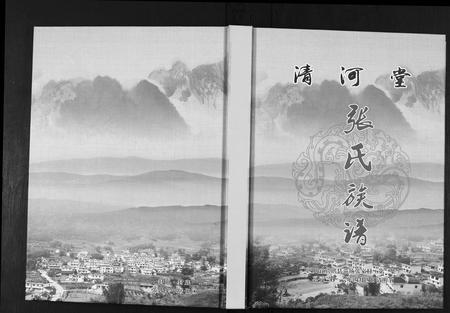 清河堂
张氏族谱